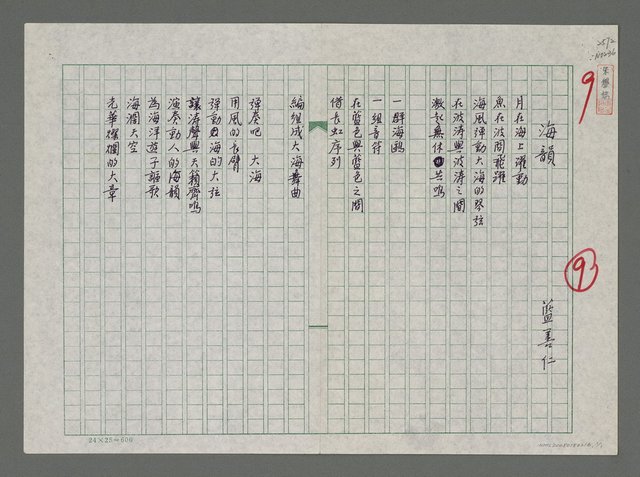 海韻
藍善仁
月在海上躍動
魚在波間飛躍
海風彈動大海的琴弦
在波濤與波濤之間
激起無休止共鳴
一群海鷗
一組音符
在藍色與藍色之間
借長虹序列
編組成大海舞曲
彈奏吧 大海
用風的長臂
彈動海的大弦
讓濤聲與天籟齊鳴
演奏動人的海韻
為海洋遊子謳歌
海濶天空
光華燦爛的大章
9
9
24×25=600